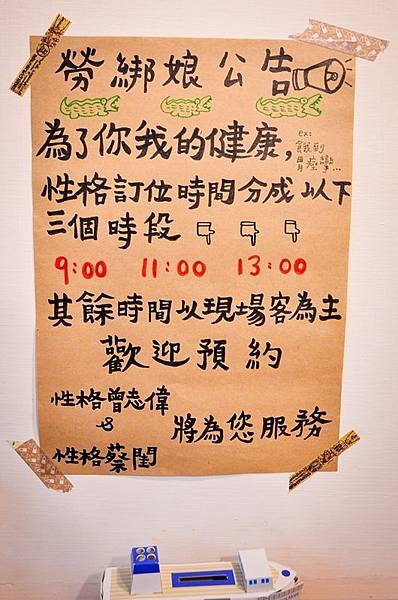 勞綁娘公告
為了你我的健康,
ex:
餓到
胃痙攣...
性格訂位時間分成以下
三個時段
9:00 11:00 13:00
其餘時間以現場客為主
歡迎預約
性格曾志偉
&
性格蔡閨
將為您服務